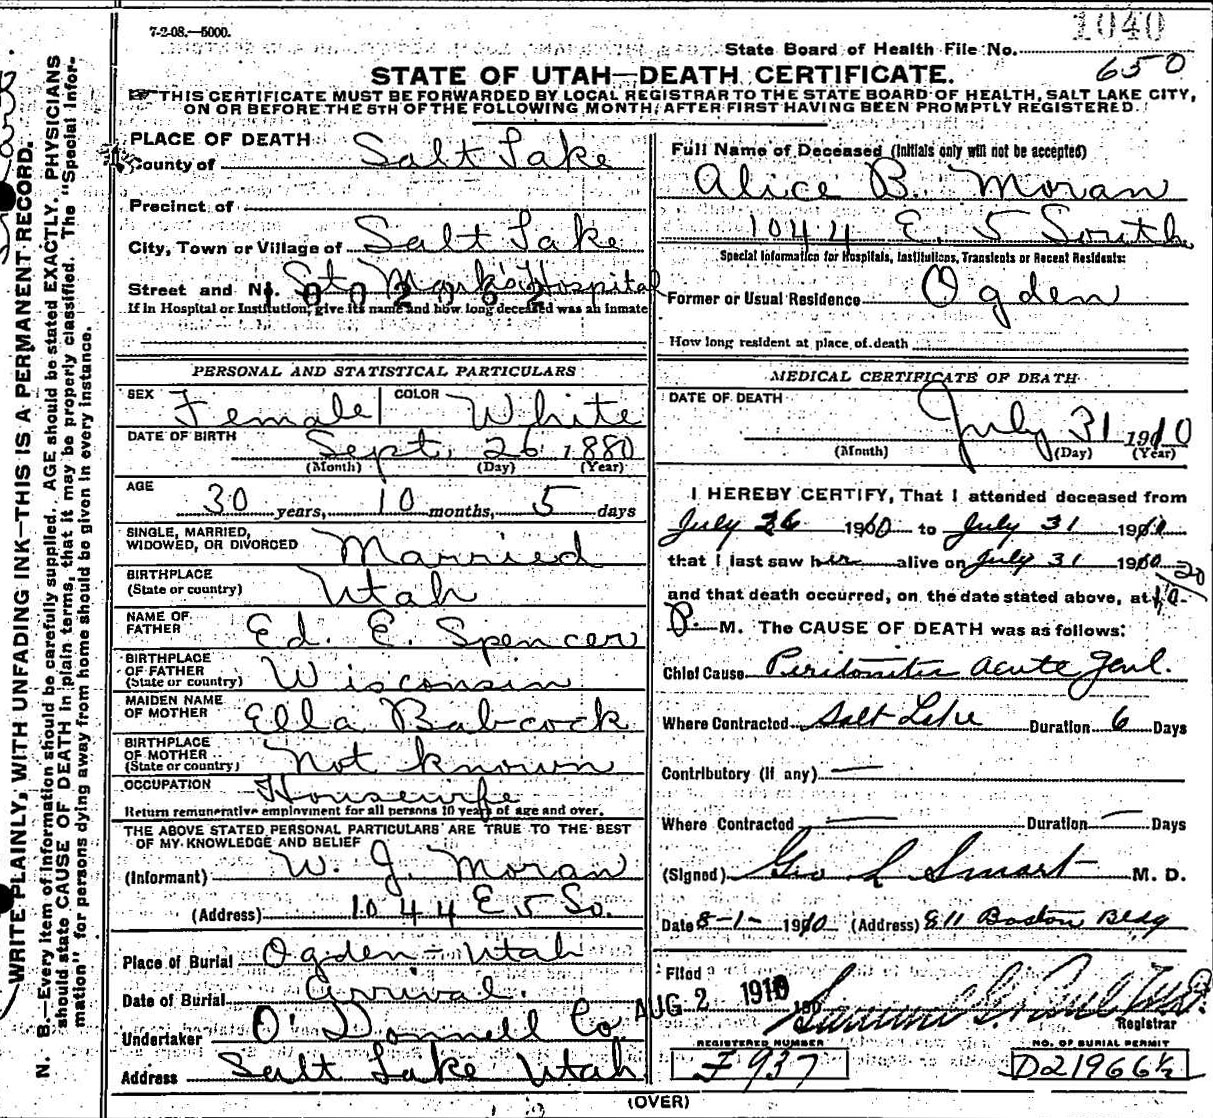 7-2-08.—5000.
1040
State Board of Health File No. 650
STATE OF UTAH—DEATH CERTIFICATE.
THIS CERTIFICATE MUST BE FORWARDED BY LOCAL REGISTRAR TO THE STATE BOARD OF HEALTH, SALT LAKE CITY,
ON OR BEFORE THE 5TH OF THE FOLLOWING MONTH, AFTER FIRST HAVING BEEN PROMPTLY REGISTERED.
WRITE PLAINLY, WITH UNFADING INK—THIS IS A PERMANENT RECORD.
N. B.—Every item of information should be carefully supplied. AGE should be stated EXACTLY. PHYSICIANS
should state CAUSE OF DEATH in plain terms, that it may be properly classified. The "Special Infor-
mation" for persons dying away from home should be given in every instance.
PLACE OF DEATH
County of Salt Lake
Precinct of
City, Town or Village of Salt Lake
Street and No. St. Mark's Hospital
1002062
If in Hospital or Institution, give its name and how long deceased was an inmate
PERSONAL AND STATISTICAL PARTICULARS
SEX Female COLOR White
DATE OF BIRTH Sept. 26 1880
(Month) (Day) (Year)
AGE
30 years, 10 months, 5 days
SINGLE, MARRIED,
WIDOWED, OR DIVORCED Married
BIRTHPLACE
(State or country) Utah
NAME OF
FATHER Ed. E. Spencer
BIRTHPLACE
OF FATHER
(State or country) Wisconsin
MAIDEN NAME
OF MOTHER Ella Babcock
BIRTHPLACE
OF MOTHER
(State or country) Not known
OCCUPATION Housewife
Return remunerative employment for all persons 10 years of age and over.
THE ABOVE STATED PERSONAL PARTICULARS ARE TRUE TO THE BEST
OF MY KNOWLEDGE AND BELIEF
(Informant) W. J. Moran
(Address) 1044 E 5 So.
Place of Burial Ogden - Utah
Date of Burial Arrival.
Undertaker O'Donnell Co
Address Salt Lake Utah
Full Name of Deceased (Initials only will not be accepted)
Alice B. Moran
1044 E. 5 South
Special Information for Hospitals, Institutions, Transients or Recent Residents:
Former or Usual Residence Ogden
How long resident at place of death
MEDICAL CERTIFICATE OF DEATH
DATE OF DEATH
July 31 1910
(Month) (Day) (Year)
I HEREBY CERTIFY, That I attended deceased from
July 26 1910 to July 31 1910
that I last saw her alive on July 31 1910
and that death occurred, on the date stated above, at
P. M. The CAUSE OF DEATH was as follows:
Chief Cause Peritonitis acute Genl.
Where Contracted Salt Lake Duration 6 Days
Contributory (if any) —
Where Contracted — Duration — Days
(Signed) Geo L Smart M. D.
Date 8-1- 1910 (Address) 811 Boston Bldg
Filed AUG 2 1910 190
Registrar
REGISTERED NUMBER
F 937
NO. OF BURIAL PERMIT
D21966½
(OVER)